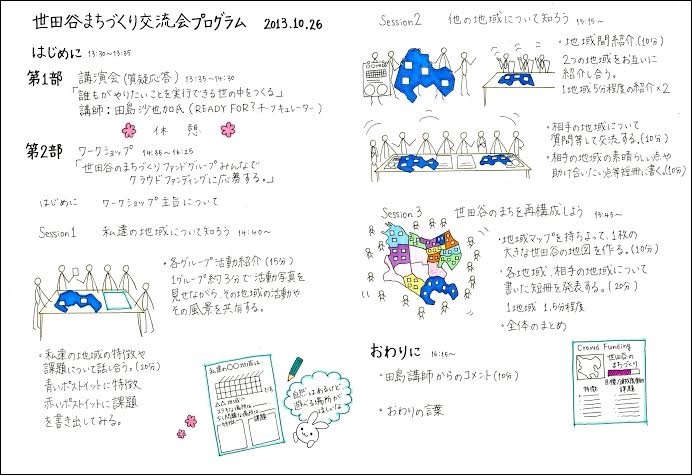 世田谷まちづくり交流会プログラム 2013.10.26
はじめに 13:30〜13:35
第1部 講演会(質疑応答) 13:35〜14:30
「誰もがやりたいことを実行できる世の中をつくる」
講師:田島沙也加氏(READY FOR?チーフキュレーター)
休憩
第2部 ワークショップ 14:35〜16:25
「世田谷のまちづくりファンドグループみんなで
クラウドファンディングに応募する。」
はじめに ワークショップ主旨について
Session1 私達の地域について知ろう 14:40〜
・各グループ活動紹介(15分)
1グループ約3分で活動写真を
見せながら、その地域の活動や
その風景を共有する。
・私達の地域の特徴や
課題について話し合う。(20分)
青いポストイットに特徴
赤いポストイットに課題
を書き出してみる。
私達の〇〇地域は、
である
△△地域の
特徴
課題
自然はあるけど
遊べる場所が
ほしいな
Session2 他の地域について知ろう 15:15〜
・地域間紹介(10分)
2つの地域をお互いに
紹介し合う。
1地域5分程度の紹介×2
・相手の地域について
質問等して交流する。(10分)
・相手の地域の素晴らしい点や
助け合いたい点等短冊に書く。(10分)
Session3 世田谷のまちを再構成しよう 15:45〜
・地域マップを持ちよって、1枚の
大きな世田谷の地図を作る。(10分)
・各地域、相手の地域について
書いた短冊を発表する。(20分)
1地域 1.5分程度
・全体のまとめ
おわりに 16:15〜
・田島講師からのコメント(10分)
・おわりの言葉
Crowd Funding
世田谷の
まちづくり
特徴
課題